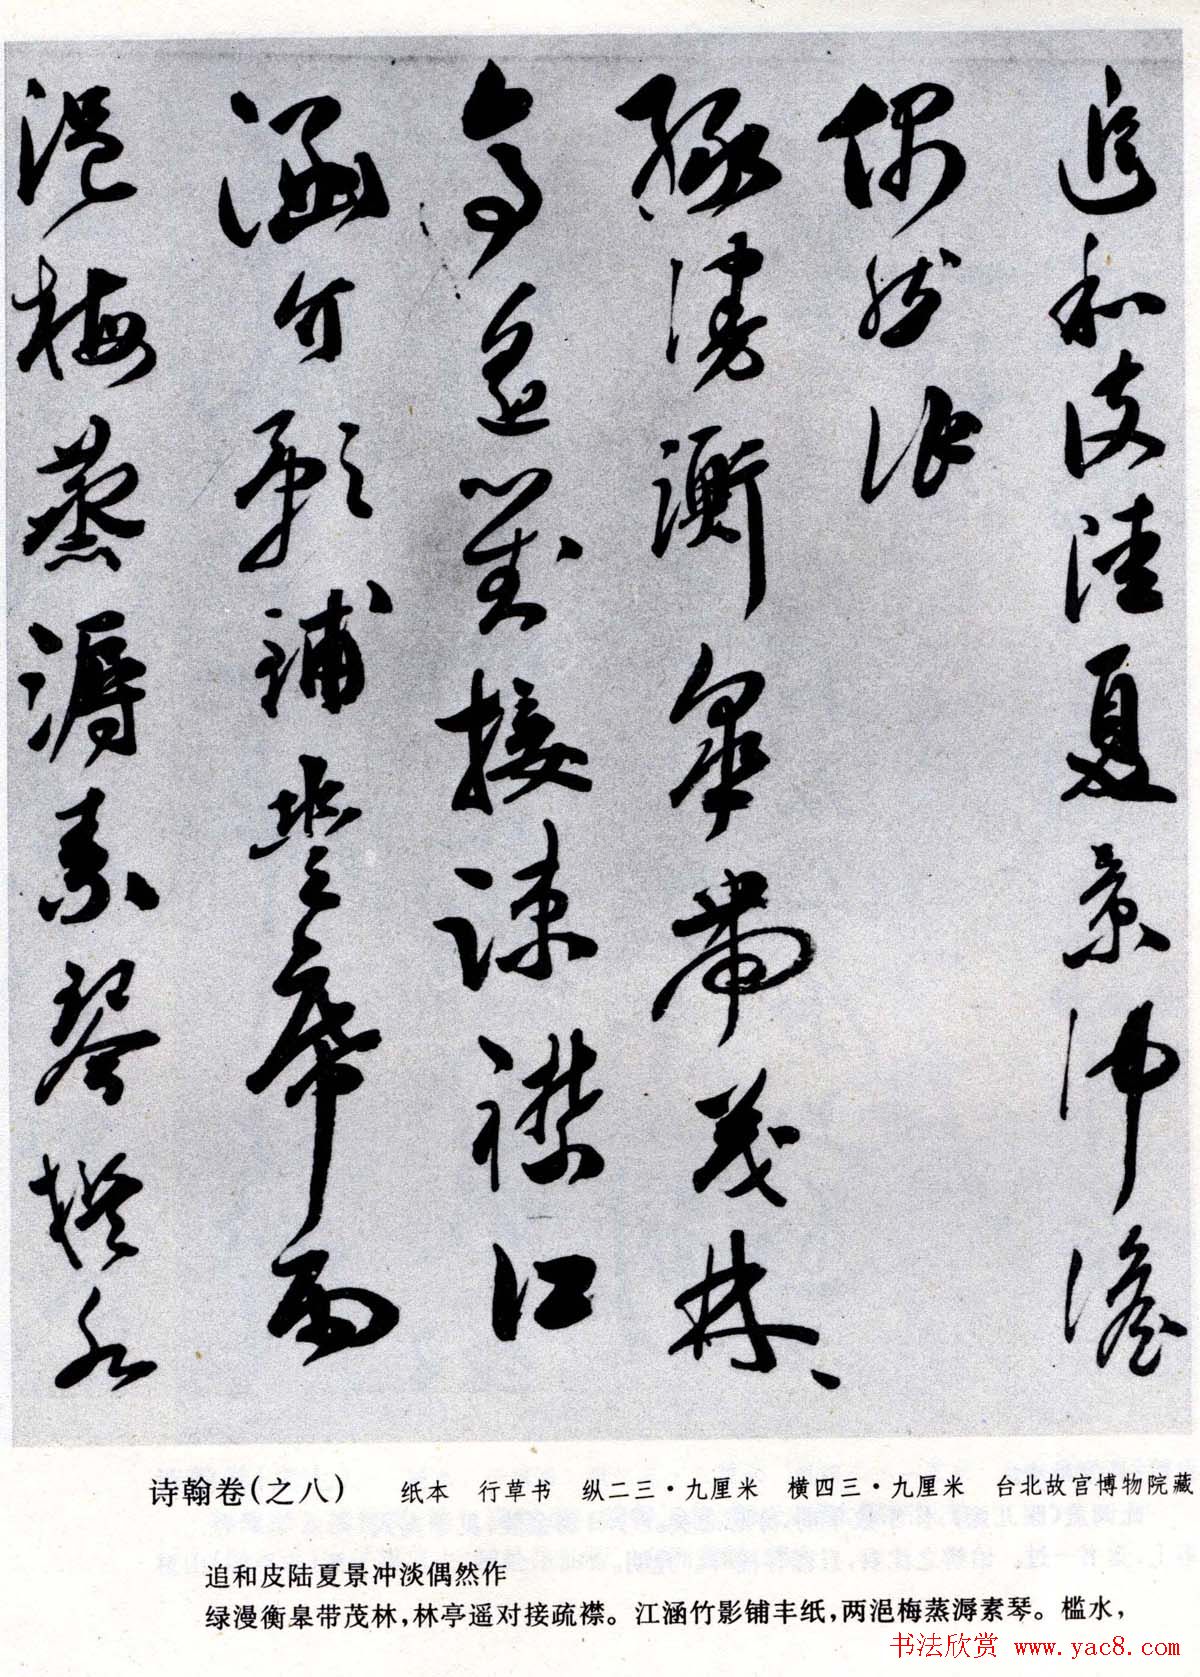 追和皮陸夏景沖澹
偶然作
綠漫衡皋帶茂林、
亭遥對接疎襟江
涵竹影鋪豐帋雨
浥梅蒸溽素琴檻水
诗翰卷(之八) 纸本 行草书 纵二三·九厘米 横四三·九厘米 台北故宫博物院藏
追和皮陆夏景冲淡偶然作
绿漫衡皋带茂林,林亭遥对接疏襟。江涵竹影铺丰纸,两浥梅蒸溽素琴。槛水,
书法欣赏 www.yac8.com